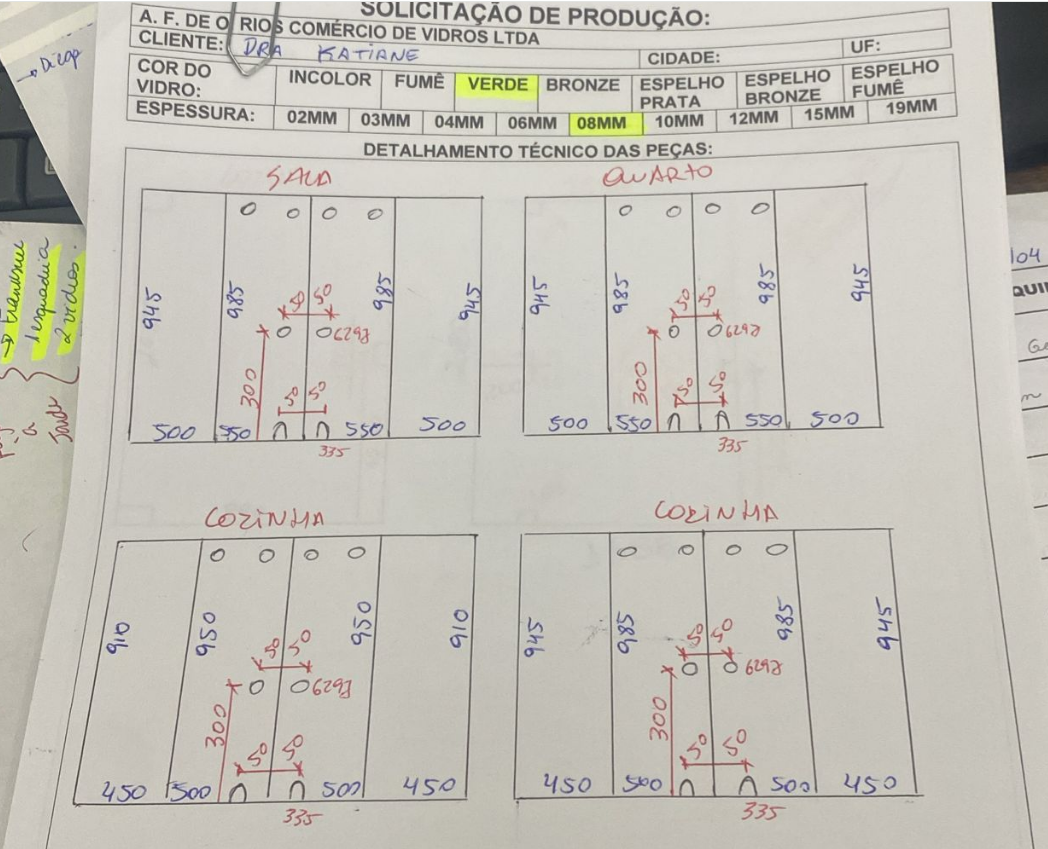 SOLICITAÇÃO DE PRODUÇÃO:
A. F. DE O RIOS COMÉRCIO DE VIDROS LTDA
CLIENTE: DRA KATIANE CIDADE: UF:
COR DO VIDRO: INCOLOR FUMÊ VERDE BRONZE ESPELHO PRATA ESPELHO BRONZE ESPELHO FUMÊ
ESPESSURA: 02MM 03MM 04MM 06MM 08MM 10MM 12MM 15MM 19MM
DETALHAMENTO TÉCNICO DAS PEÇAS:
SALA
945 985 985 945
50 50
6298
300
50 50
500 550 550 500
335
QUARTO
945 985 985 945
50 50
6298
300
50 50
500 550 550 500
335
COZINHA
910 950 950 910
50 50
6298
300
50 50
450 500 500 450
335
COZINHA
945 985 985 945
50 50
6298
300
50 50
450 500 500 450
335
1 esquadria
2 vidros.
104